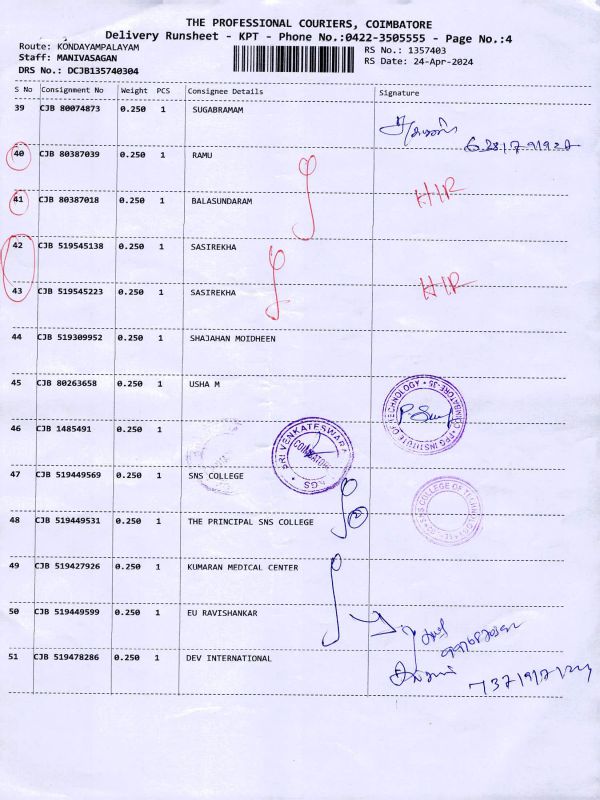 THE PROFESSIONAL COURIERS, COIMBATORE
Delivery Runsheet - KPT - Phone No.:0422-3505555 - Page No.:4
Route: KONDAYAMPALAYAM
RS No.: 1357403
Staff: MANIVASAGAN
RS Date: 24-Apr-2024
DRS No.: DCJB135740304
S No Consignment No Weight PCS Consignee Details Signature
39 CJB 80074873 0.250 1 SUGABRAMAM
40 CJB 80387039 0.250 1 RAMU
41 CJB 80387018 0.250 1 BALASUNDARAM
42 CJB 519545138 0.250 1 SASIREKHA
43 CJB 519545223 0.250 1 SASIREKHA
44 CJB 519309952 0.250 1 SHAJAHAN MOIDHEEN
45 CJB 80263658 0.250 1 USHA M
46 CJB 1485491 0.250 1
SRI VENKATESWARA
47 CJB 519449569 0.250 1 SNS COLLEGE
48 CJB 519449531 0.250 1 THE PRINCIPAL SNS COLLEGE
49 CJB 519427926 0.250 1 KUMARAN MEDICAL CENTER
50 CJB 519449599 0.250 1 EU RAVISHANKAR
51 CJB 519478286 0.250 1 DEV INTERNATIONAL